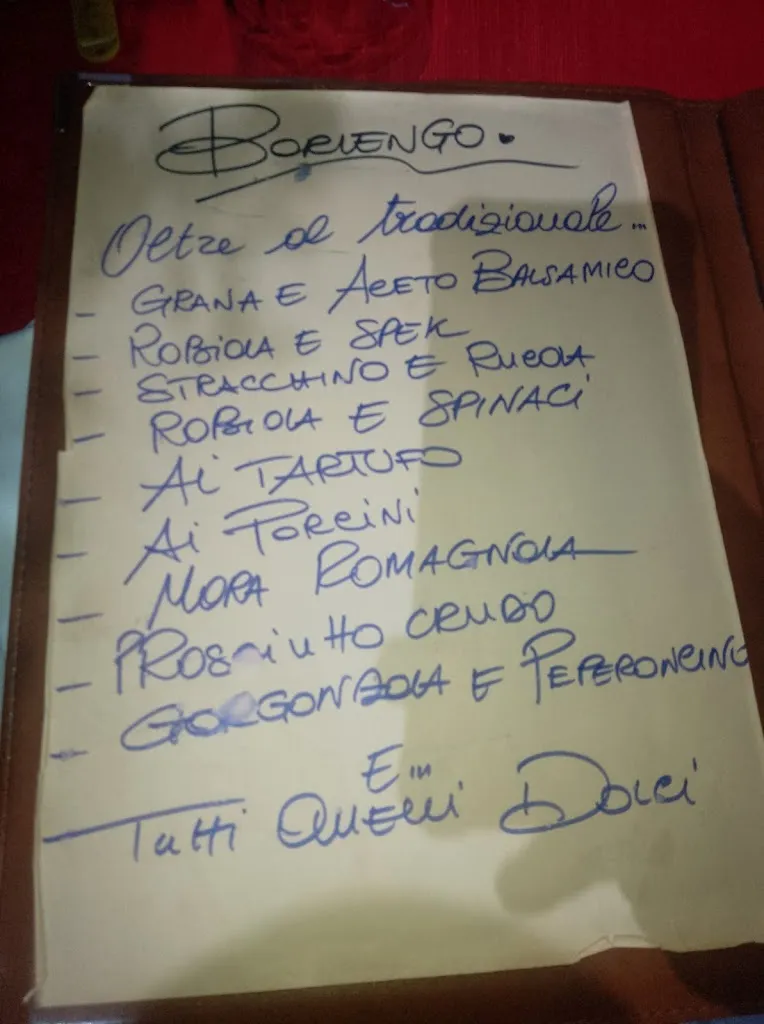 BORLENGO.
Oltre al tradizionale...
- GRANA E ACETO BALSAMICO
- ROBIOLA E SPEK
- STRACCHINO E RUCOLA
- ROBIOLA E SPINACI
- AI TARTUFO
- AI PORCINI
- MORA ROMAGNOLA
- PROSCIUTTO CRUDO
- GORGONZOLA E PEPERONCINO
E...
Tutti QUELLI DOLCI